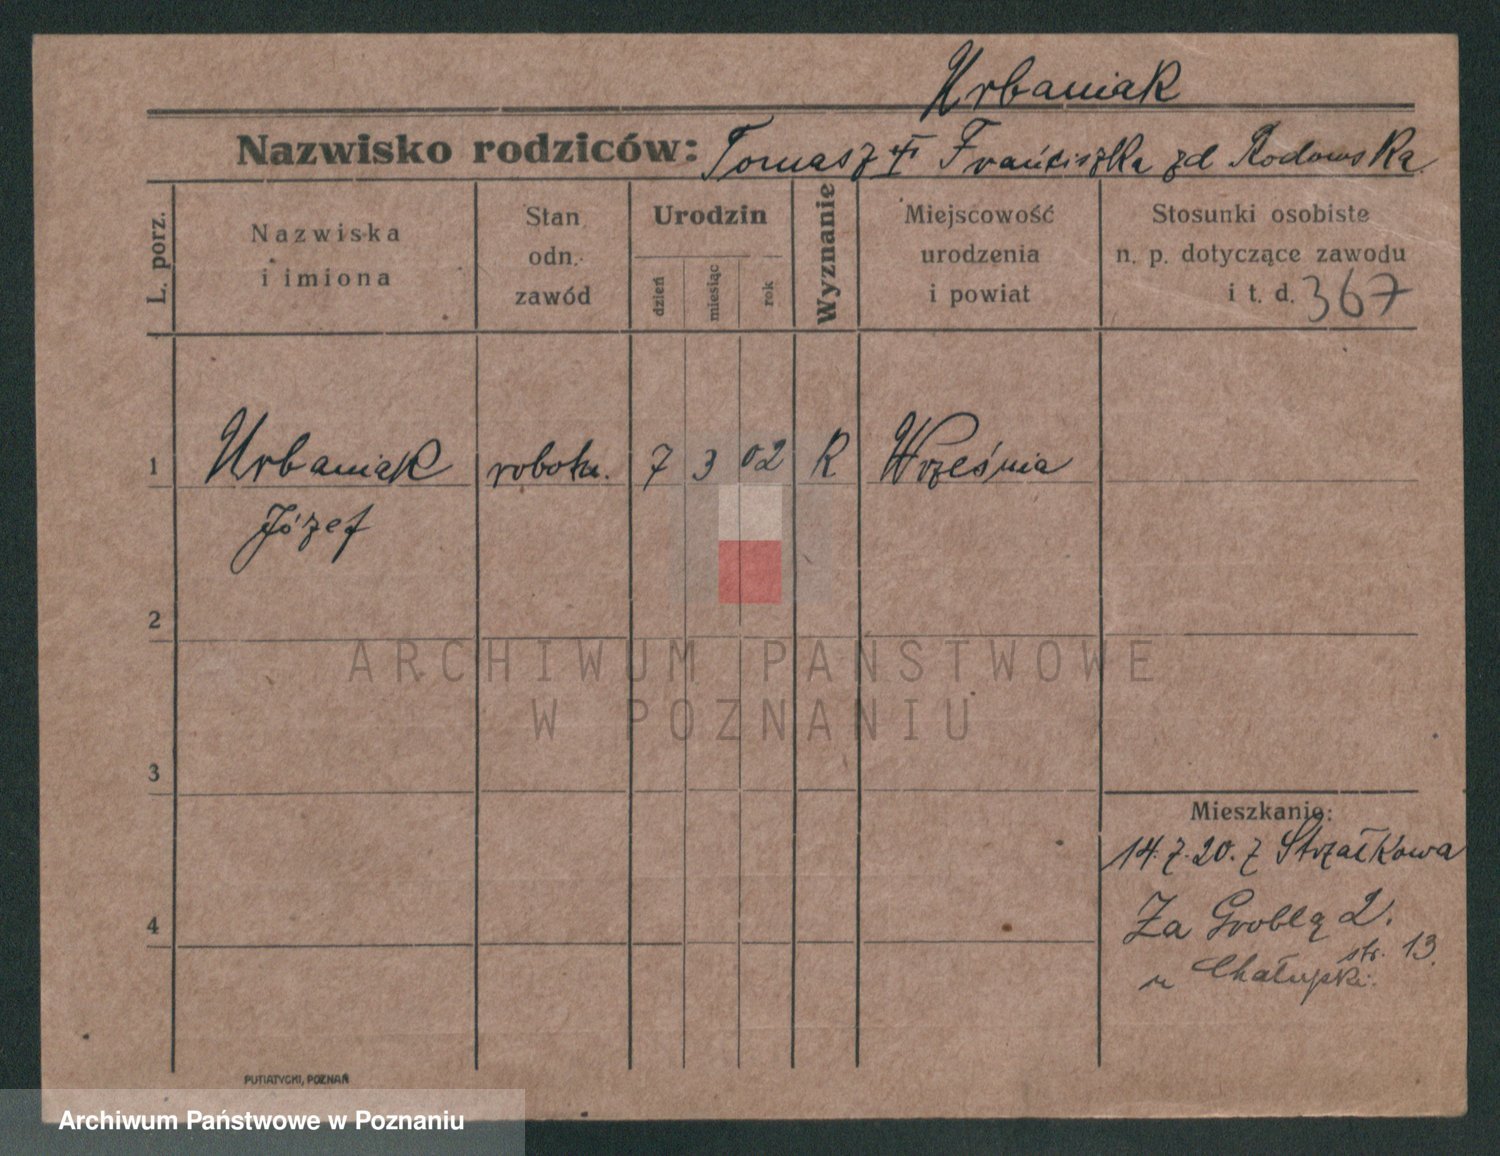 Urbaniak
Nazwisko rodziców: Tomasz Franciszka zd Rodowska
L. porz.
Nazwiska
i imiona
Stan
odn.
zawód
Urodzin
dzień
miesiąc
rok
Wyznanie
Miejscowość
urodzenia
i powiat
Stosunki osobiste
n. p. dotyczące zawodu
i t. d. 367
1 Urbaniak robotn. 7 3 02 R Września
Józef
2
3
4
Mieszkanie:
14.7.20. z Strzałkowa
Za Groblą 2.
str. 13.
u Chałupki
ARCHIWUM PAŃSTWOWE
W POZNANIU
PUTIATYCKI, POZNAŃ
Archiwum Państwowe w Poznaniu